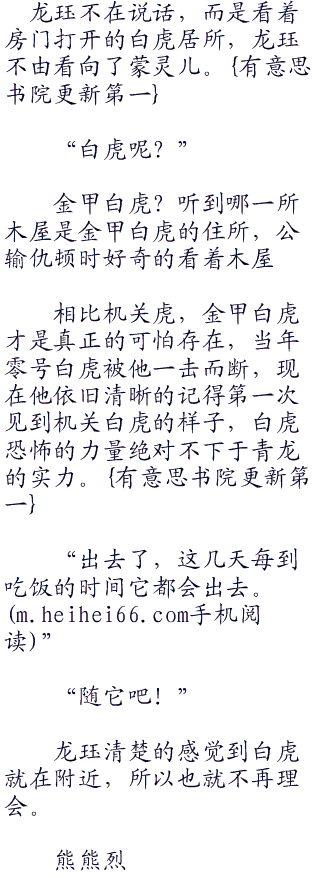 龙珏不在说话，而是看着
房门打开的白虎居所，龙珏
不由看向了蒙灵儿。{有意思
书院更新第一}
“白虎呢？”
金甲白虎？听到哪一所
木屋是金甲白虎的住所，公
输仇顿时好奇的看着木屋
相比机关虎，金甲白虎
才是真正的可怕存在，当年
零号白虎被他一去而断，现
在他依旧清晰的记得第一次
见到机关白虎的样子，白虎
恐怖的力量绝对不下于青龙
的实力。{有意思书院更新第
一}
“出去了，这几天每到
吃饭的时间它都会出去。
(m.heihei66.com手机阅
读)”
“随它吧！”
龙珏清楚的感觉到白虎
就在附近，所以也就不再理
会。
熊熊烈